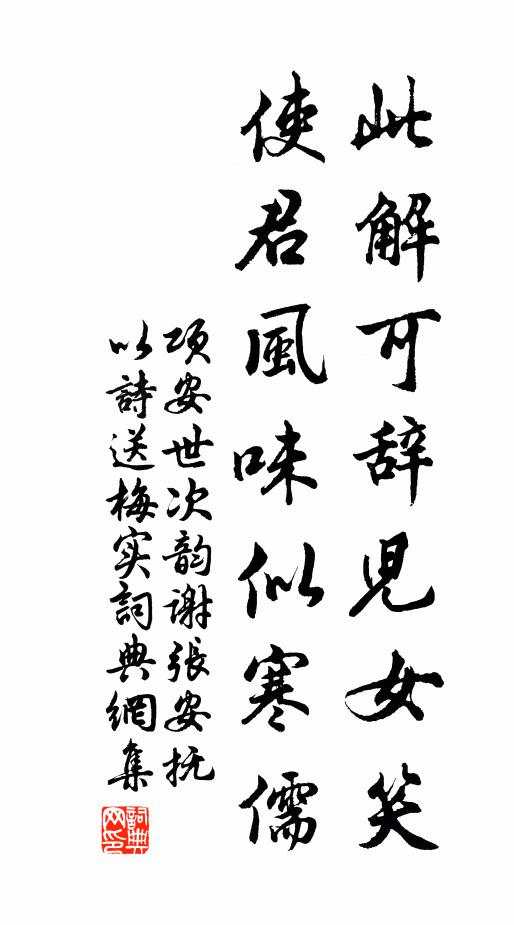 此解可辞児女笑
使君風味似寒儒
项安世次韵谢張安抚
以詩送梅实詞典網集
詞典
网印